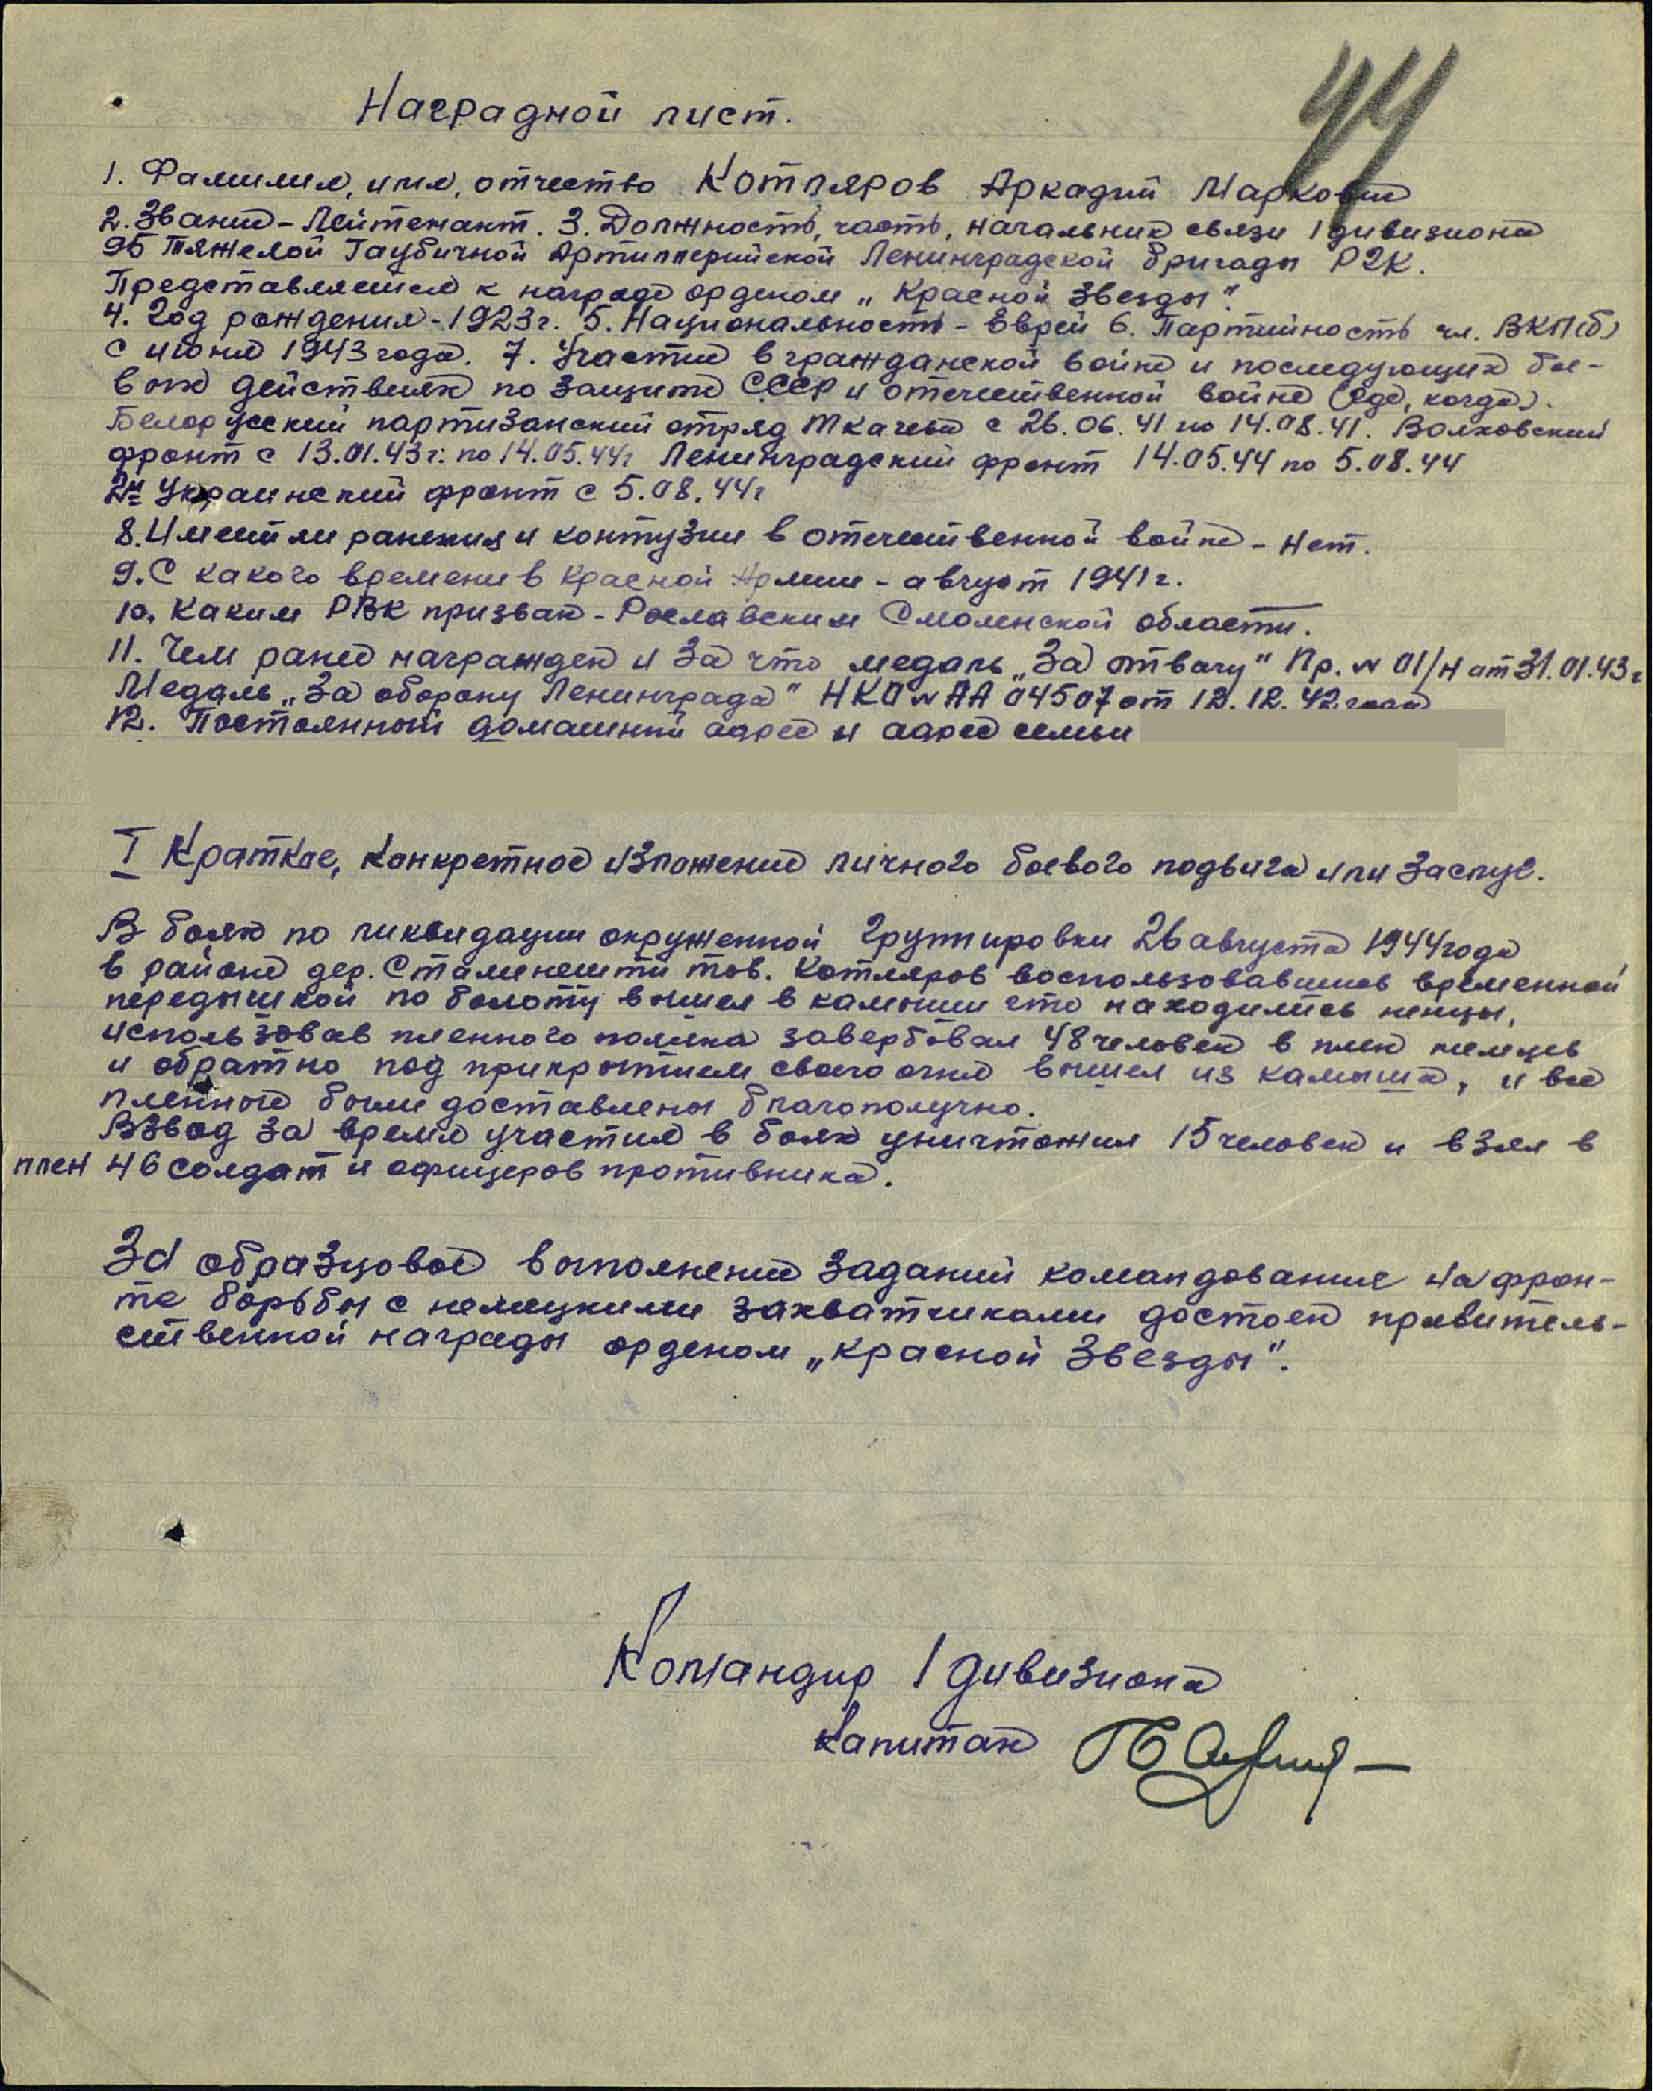 44
Наградной лист.
1. Фамилия, имя, отчество Котляров Аркадий Маркович
2. Звание - Лейтенант. 3. Должность, часть, начальник связи 1 дивизиона
95 Тяжелой Гаубичной Артиллерийской Ленинградской бригады РГК.
Представляется к награде орденом „Красной Звезды".
4. Год рождения - 1923 г. 5. Национальность - Еврей 6. Партийность чл. ВКП(б)
с июня 1943 года. 7. Участие в гражданской войне и последующих бое-
вых действиях по защите СССР и отечественной войне (где, когда).
Белорусский партизанский отряд Ткачева с 26.06.41 по 14.08.41. Волховский
фронт с 13.01.43 г. по 14.05.44 г Ленинградский фронт 14.05.44 по 5.08.44
2й Украинский фронт с 5.08.44 г
8. Имеет ли ранения и контузии в отечественной войне - нет.
9. С какого времени в Красной Армии - август 1941 г.
10. Каким РВК призван - Рославским Смоленской области.
11. Чем ранее награжден и за что медаль „За отвагу" Пр. № 01/н от 31.01.43 г
Медаль „За оборону Ленинграда" НКО № АА 04507 от 12.12.42 года
12. Постоянный домашний адрес и адрес семьи
I Краткое, конкретное изложение личного боевого подвига или заслуг.
В боях по ликвидации окруженной группировки 26 августа 1944 года
в районе дер. Стаминешти тов. Котляров воспользовавшись временной
передышкой по болоту вышел в камыши где находились немцы,
использовав пленного поляка завербовал 48 человек в плен немцев
и обратно под прикрытием своего огня вышел из камыша, и все
пленные были доставлены благополучно.
Взвод за время участия в боях уничтожил 15 человек и взял в
плен 46 солдат и офицеров противника.
За образцовое выполнение заданий командования на фрон-
те борьбы с немецкими захватчиками достоен правитель-
ственной награды орденом „Красной Звезды".
Командир 1 дивизиона
капитан